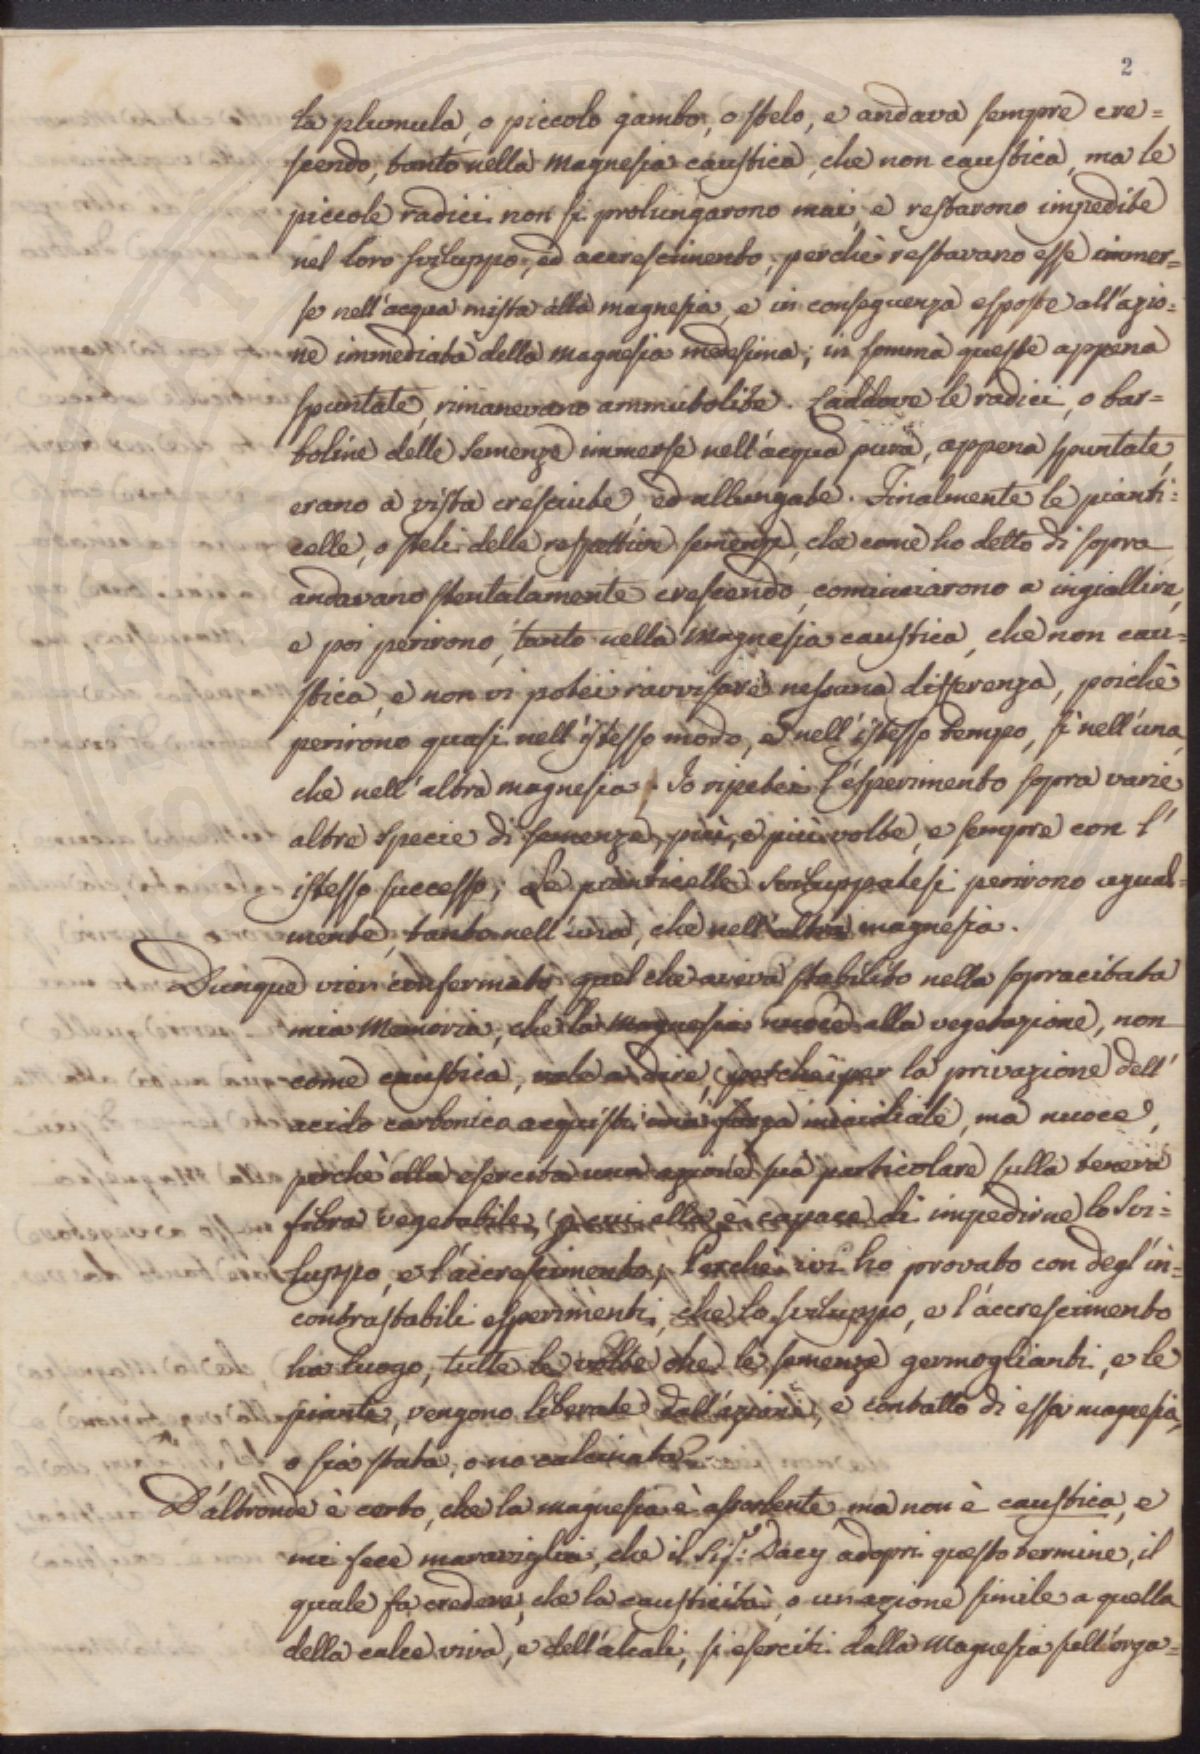 2
la plumula, o piccolo gambo, o stelo, e andava sempre cre=
scendo, tanto nella magnesia caustica, che non caustica, ma le
piccole radici non si prolungarono mai, e restarono impedite
nel loro sviluppo, ed accrescimento, perchè restavano esse immer=
se nell'acqua mista alla magnesia, e in conseguenza esposte all'azio=
ne immediata della magnesia medesima; in somma queste appena
spuntate, rimanevano ammutolite. Laddove le radici, o bar=
boline delle semenze immerse nell'acqua pura, appena spuntate,
erano a vista cresciute, ed allungate. Finalmente le pianti=
celle, o steli delle respettive semenze, che come ho detto di sopra
andavano stentatamente crescendo, cominciarono a ingiallire,
e poi perirono, tanto nella magnesia caustica, che non cau=
stica, e non vi potei ravvisare nessuna differenza, poichè
perirono quasi nell'istesso modo, e nell'istesso tempo, sì nell'una,
che nell'altra magnesia. Io ripetei l'esperimento sopra varie
altre specie di semenze, più, e più volte, e sempre con l'
istesso successo; Le pianticelle sviluppatesi perirono egual=
mente, tanto nell'una, che nell'altra magnesia.
Dunque vien confermato quel che aveva stabilito nella sopracitata
mia Memoria, che la magnesia nuoce alla vegetazione, non
come caustica, vale a dire, perchè per la privazione dell'
acido carbonico acquisti una forza micidiale, ma nuoce,
perchè ella esercita una azione sua particolare sulla tenera
fibra vegetabile, per cui ella è capace di impedirne lo svi=
luppo, e l'accrescimento; Perchè ivi ho provato con degl'in=
contrastabili esperimenti, che lo sviluppo, e l'accrescimento
ha luogo, tutte le volte che le semenze germoglianti, e le
piante, vengono liberate dall'azione, e contatto di essa magnesia,
o sia stata, o no calcinata.
D'altronde è certo, che la magnesia è assorbente ma non è caustica, e
mi fece maraviglia, che il Sig.r Dacy adopri questo termine, il
quale fa credere, che la causticità, o un azione simile a quella
della calce viva, e dell'alcali, si eserciti dalla Magnesia sull'orga=